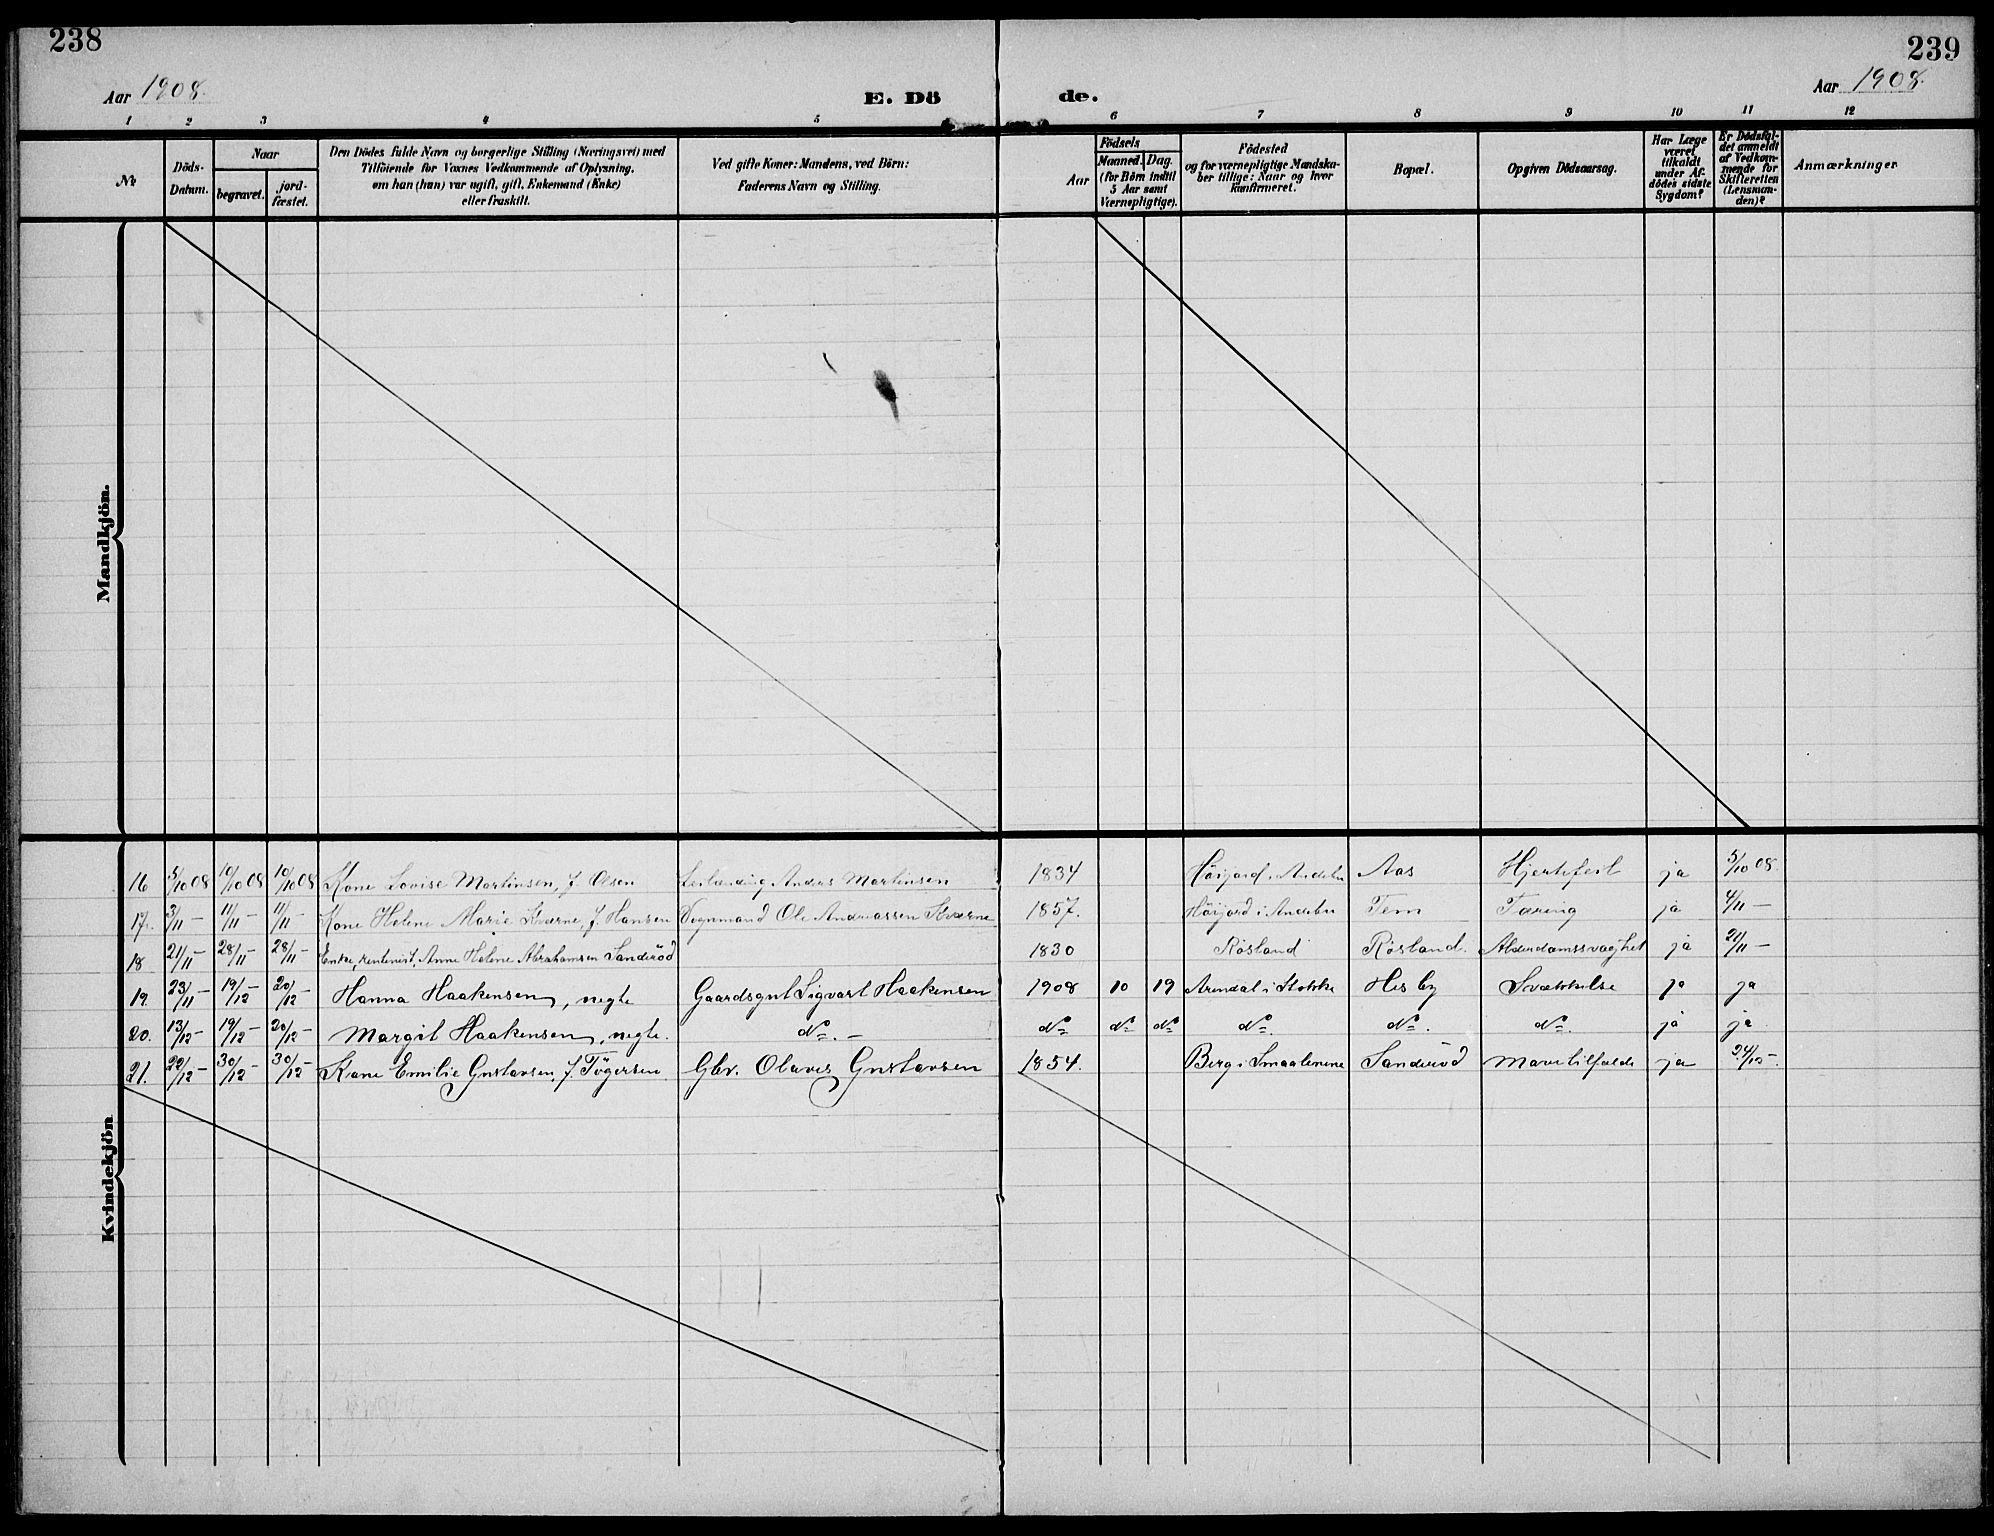 238
239
Aar 1908.
E. Dö de.
Aar 1908.
1 2 3 4 5 6 7 8 9 10 11 12
Nr.
Döds-Datum.
Naar
begravet.
jord-fæstet.
Den Dödes fulde Navn og borgerlige Stilling (Næringsvei) med
Tilföiende for Voxnes Vedkommende af Oplysning,
om han (hun) var ugift, gift, Enkemand (Enke)
eller fraskilt.
Ved gifte Koner: Mandens, ved Börn:
Faderens Navn og Stilling.
Födsels
Aar
Maaned. Dag.
(for Börn indtil
5 Aar samt
Værnepligtige).
Födested
og for værnepligtige Mandska-
ber tillige: Naar og hvor
konfirmeret.
Bopæl.
Opgiven Dödsaarsag.
Har Læge
været
tilkaldt
under Af-
dödes sidste
Sygdom?
Er Dödsfal-
det anmeldt
af Vedkom-
mende for
Skifteretten
(Lensman-
den)?
Anmærkninger.
Mandkjön.
16 5/10 08 10/10 08 10/10 08 Kone Lovise Martinsen, f. Olsen Leilænding Anders Martinsen 1834 Höijord i Andebu Aas Hjertefeil ja 5/10 08.
17. 3/11 — 11/11 — 11/11 — Kone Helene Marie Kværne, f. Hansen Vognmand Ole Andreassen Kværne 1857. Höijord i Andebu Tem Tæring ja 4/11 —
18 21/11 — 28/11 — 28/11 — Enke, rentenist, Anne Helene Abrahamsen Sanderöd 1830 Rösland Rösland. Alderdomssvaghet ja 21/11 —
19. 23/11 — 19/12 — 20/12 — Hanna Haakensen, negte Gaardsgut Sigvart Haakensen 1908 10 19 Arendal i Stokke Hesby Svækkelse ja ja
20. 13/12 — 19/12 — 20/12 — Margit Haakensen, negte. do. — do do do do. do. do. ja ja
21. 22/12 — 30/12 — 30/12 — Kone Emilie Gustavsen, f. Tögersen Gbr. Olaves Gustavsen 1854. Berg i Smaalenene Sanderöd Mavetilfælde ja 24/12 —.
Kvindekjön